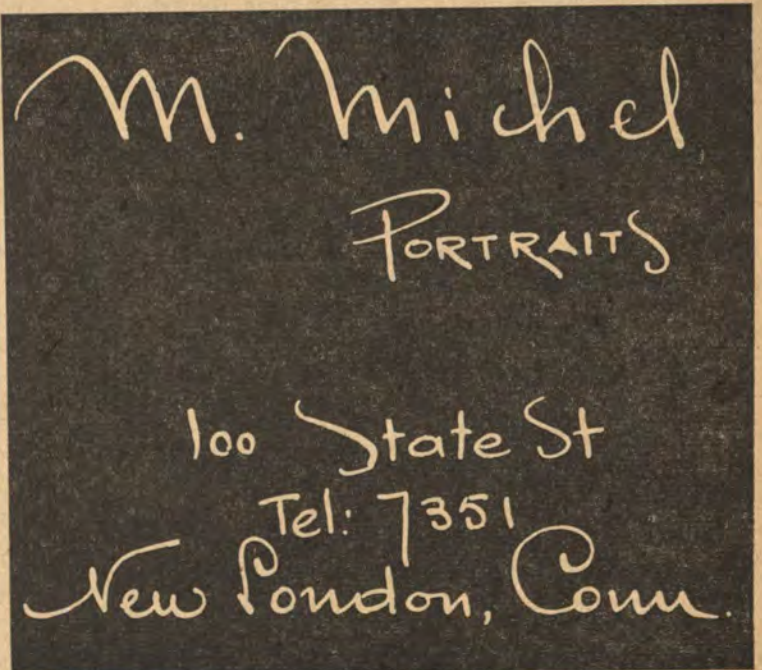 M. Michel
PORTRAITS
100 State St
Tel: 7351
New London, Conn.